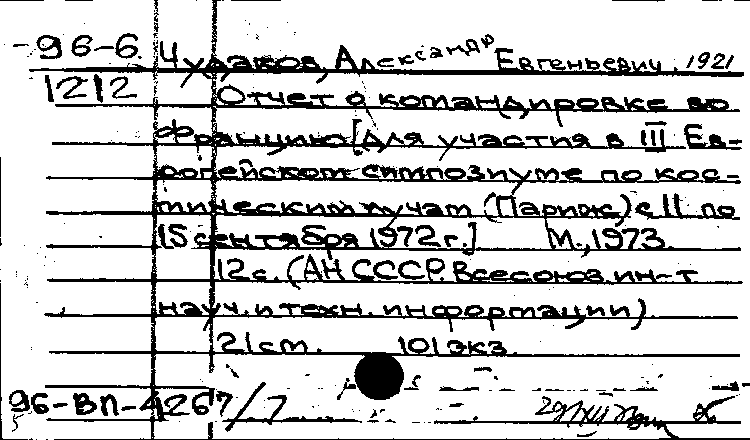 96-6 Чудаков, Александр Евгеньевич, 1921
1212 Отчет о командировке во
Францию [для участия в III Ев-
ропейском симпозиуме по кос-
мическим лучам (Париж) с 11 по
15 сентября 1972 г.] М., 1973.
12 с. (АН СССР. Всесоюз. ин-т
науч. и техн. информации)
21 см. 101 экз.
96-ВП-4267/7